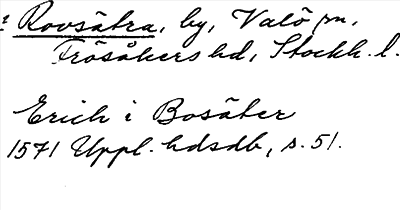 Rovsätra, by, Valö sn,
Frösåkers hd, Stockh. l.
Erich i Bosäter
1571 Uppl. hdsdb, s. 51.